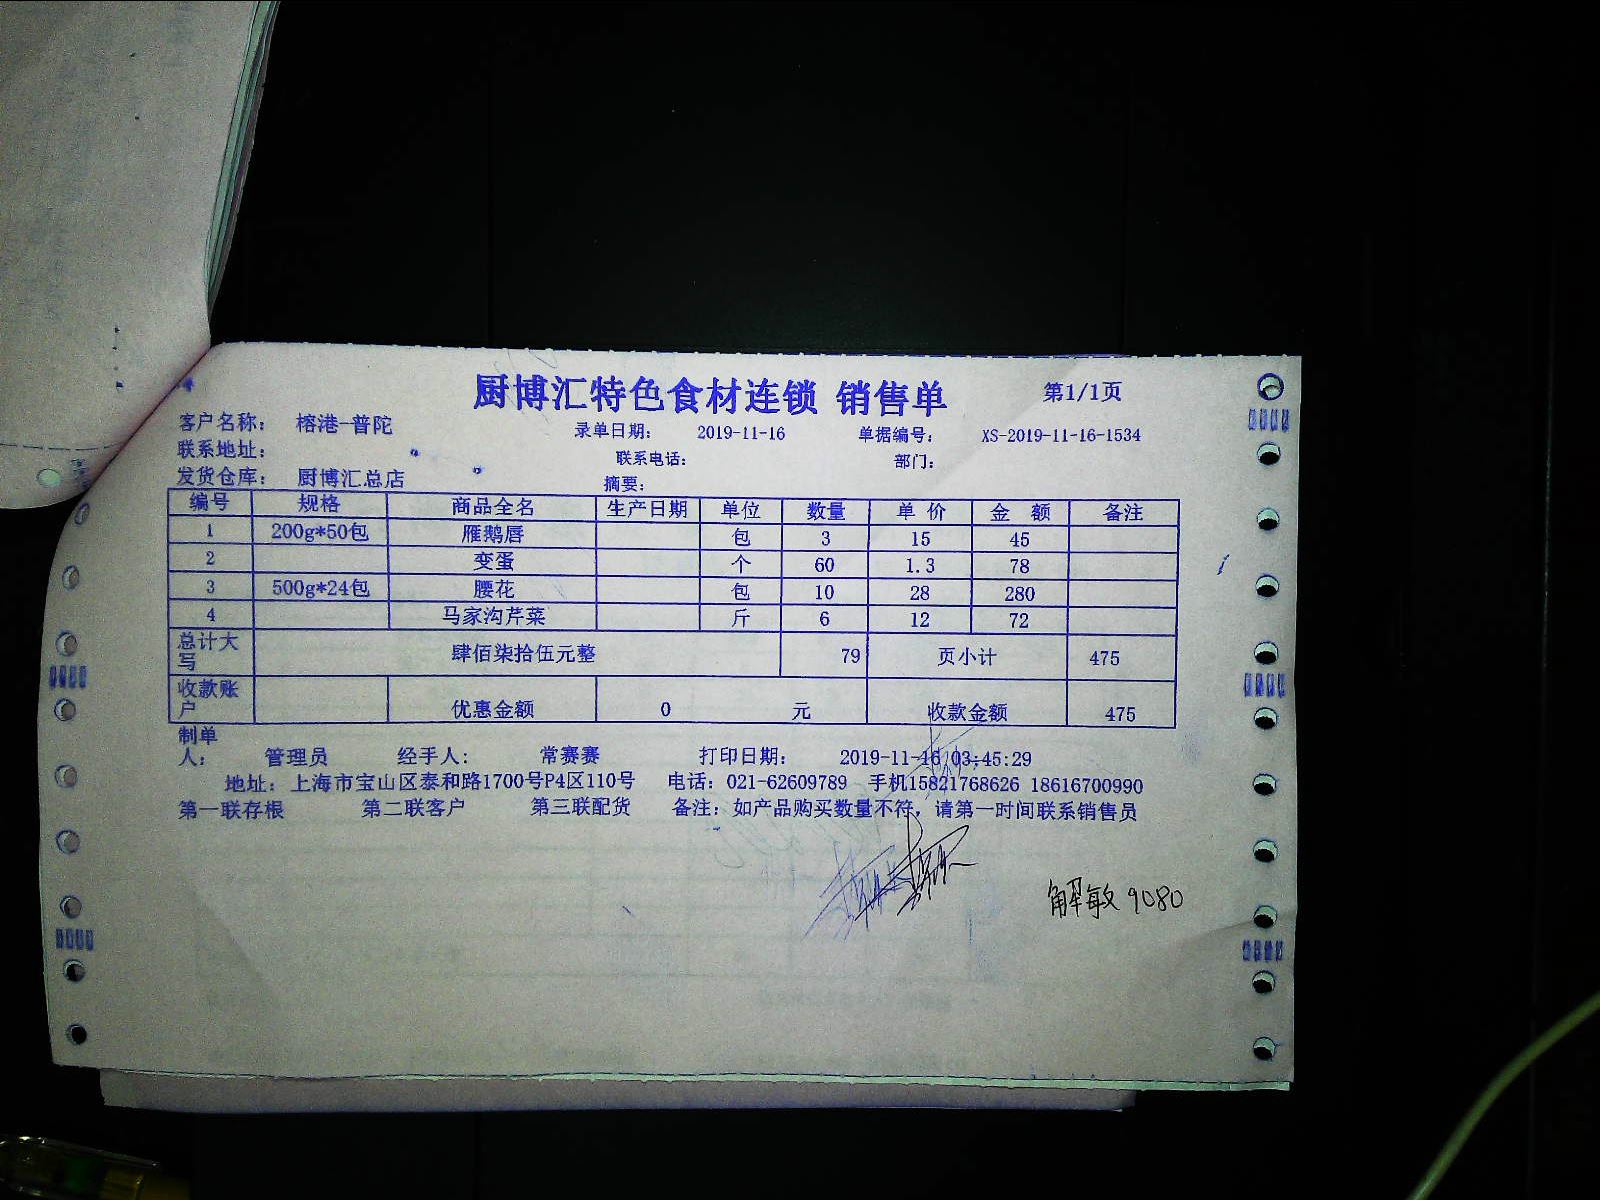 厨博汇特色食材连锁 销售单 第1/1页
客户名称： 榕港-普陀 录单日期： 2019-11-16 单据编号： XS-2019-11-16-1534
联系地址： 联系电话： 部门：
发货仓库： 厨博汇总店 摘要：
编号 规格 商品全名 生产日期 单位 数量 单 价 金 额 备注
1 200g*50包 雁鹅唇 包 3 15 45
2 变蛋 个 60 1.3 78
3 500g*24包 腰花 包 10 28 280
4 马家沟芹菜 斤 6 12 72
总计大写 肆佰柒拾伍元整 79 页小计 475
收款账户 优惠金额 0 元 收款金额 475
制单人： 管理员 经手人： 常赛赛 打印日期： 2019-11-16 03:45:29
地址：上海市宝山区泰和路1700号P4区110号 电话：021-62609789 手机15821768626 18616700990
第一联存根 第二联客户 第三联配货 备注：如产品购买数量不符，请第一时间联系销售员
解敏 9080